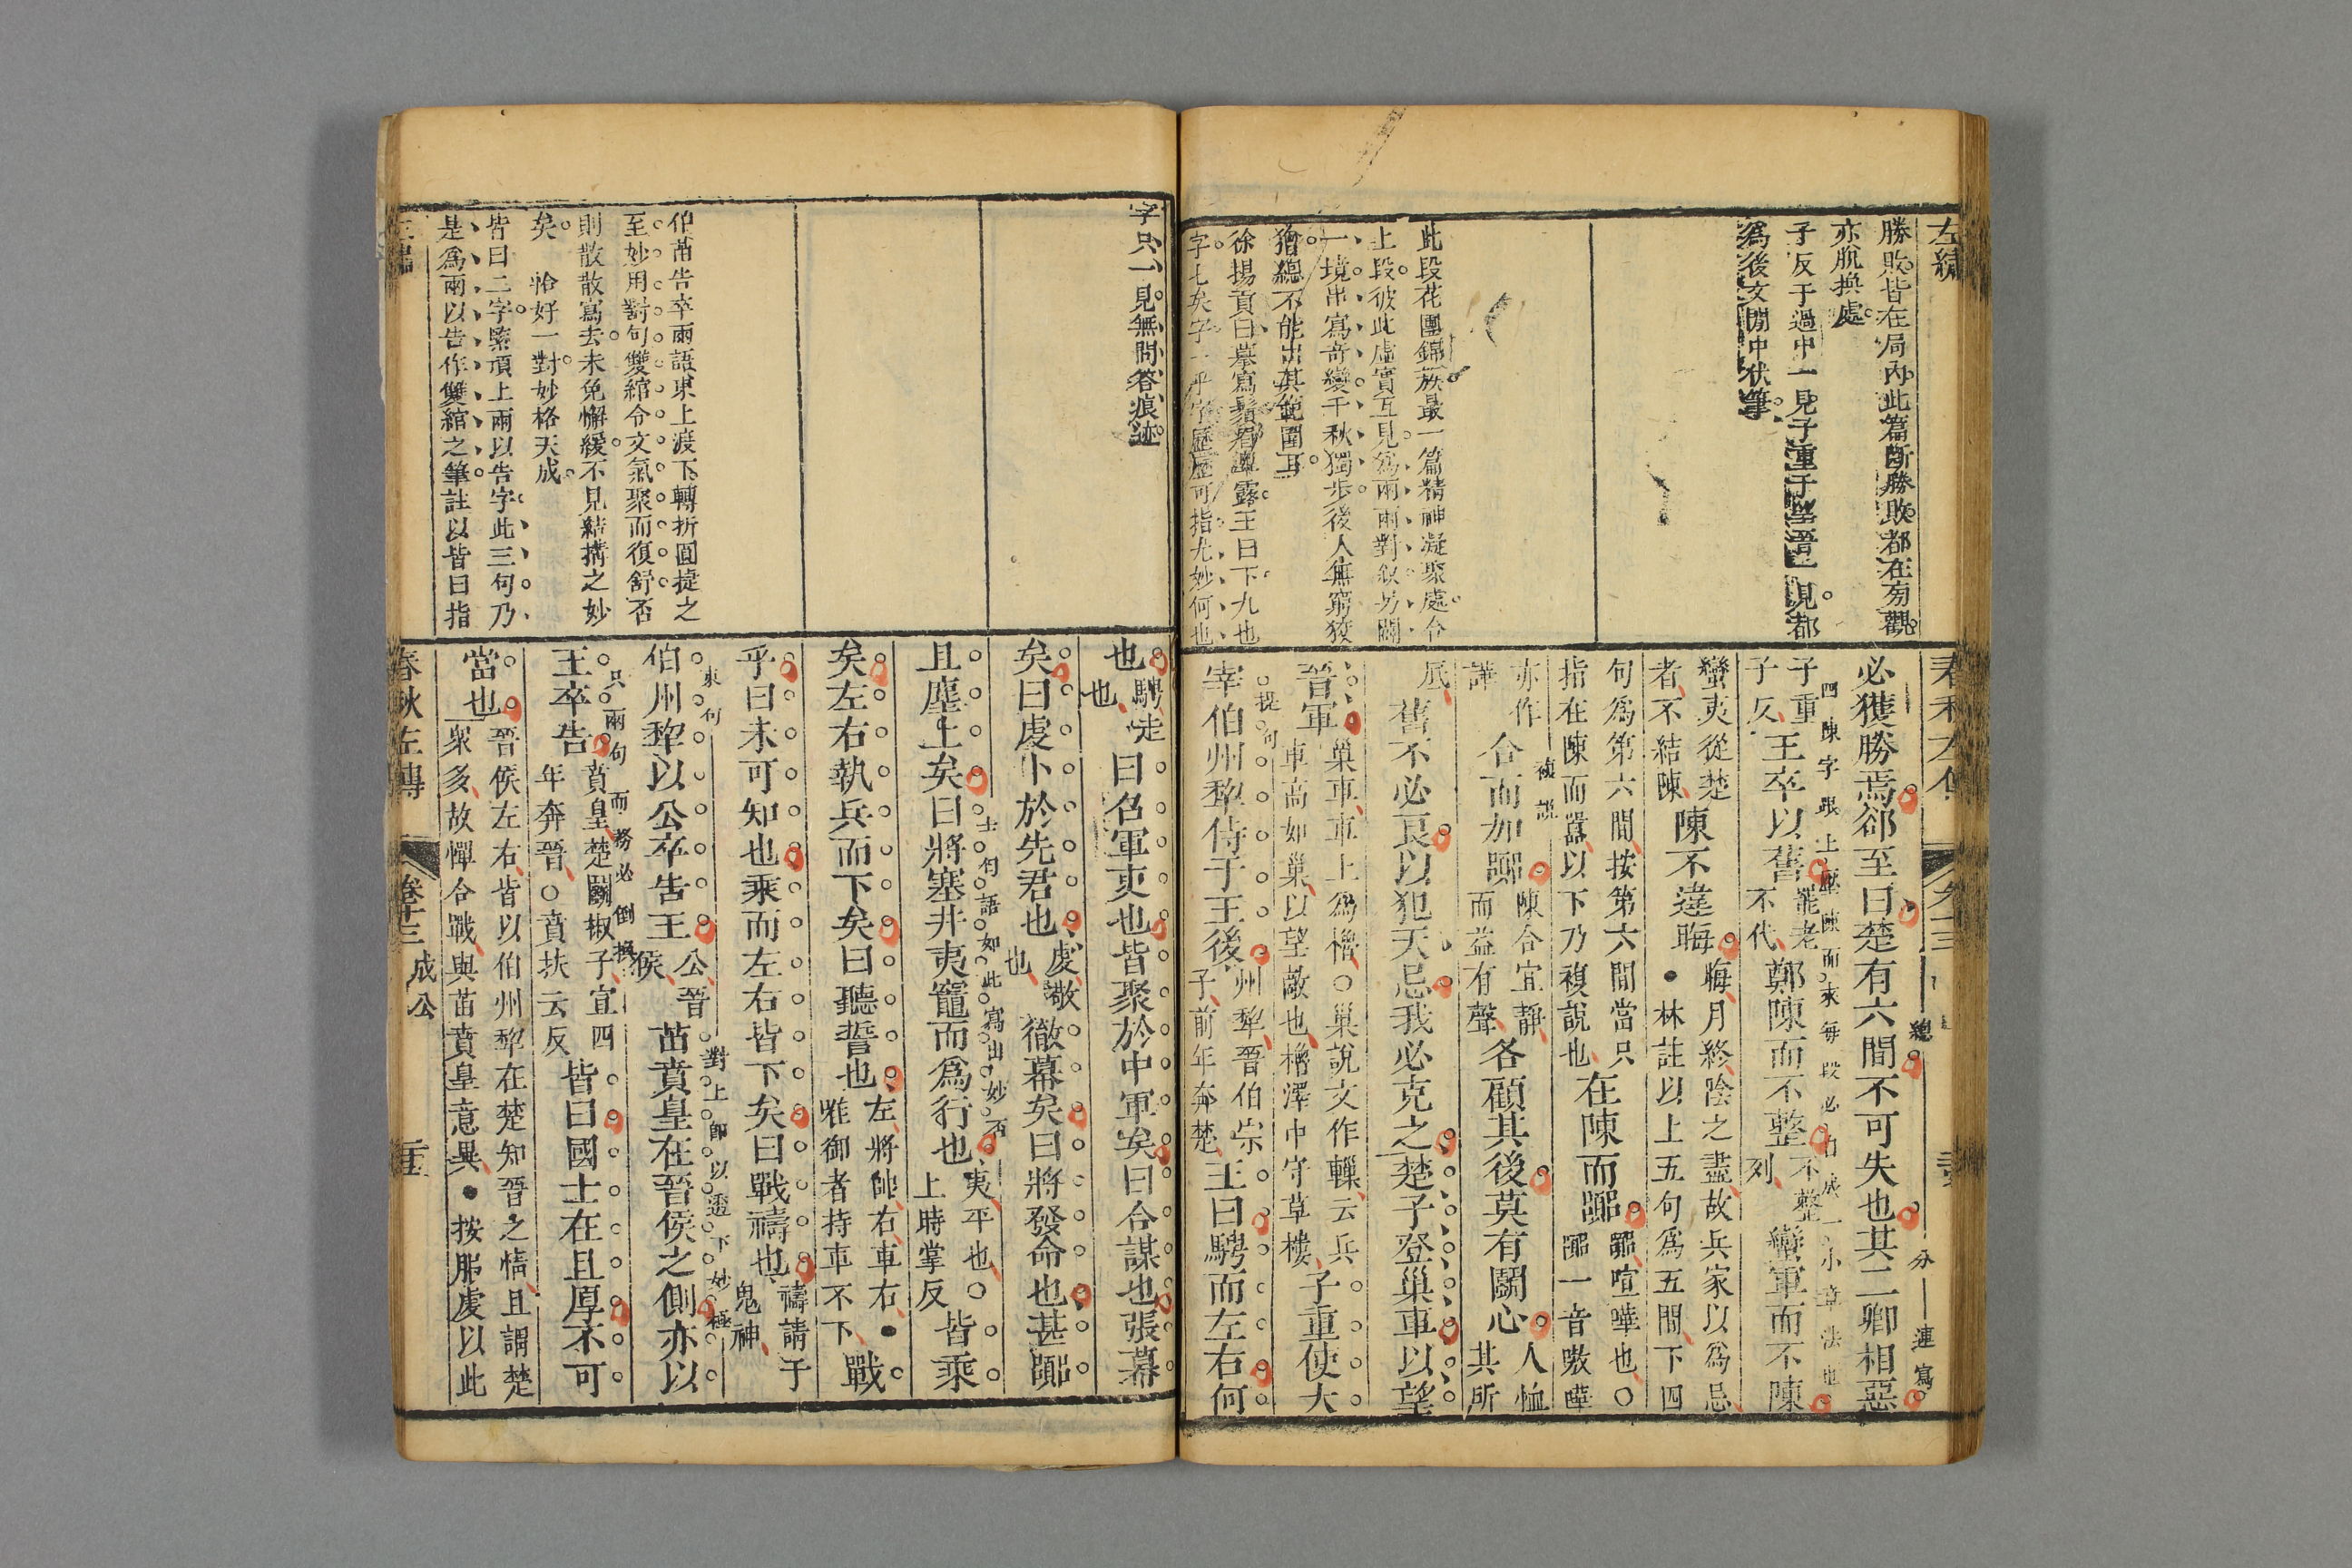 左繡
勝敗皆在局內此篇斷勝敗都在旁觀
亦脫換處
子反于過中一見子重于望晉一見都
爲後文閒中伏筆
此段花團錦簇最一篇精神凝聚處合
上段彼此虛實互見爲兩兩對敘另闢
一境出寫奇變千秋獨步後人無窮狡
猾總不能出其範圍耳
徐揚貢曰摹寫鬚眉譚露王曰下九也
字七矣字一乎字歷歷可指尤妙何也
春秋左傳
必獲勝焉郤至曰楚有六間不可失也其二卿相惡
總 分 連寫
子重
子反
王卒以舊
罷老
不代
鄭陳而不整
不整
列
蠻軍而不陳
四陳字跟上壓陳而來每段必自成一小章法也
蠻夷從楚
者不結陳
陳不違晦
晦月終陰之盡故兵家以爲忌
●林註以上五句爲五間下四
句爲第六間按第六間當只
指在陳而嚻以下乃複說也
在陳而嚻
嚻喧嘩也○
嚻一音嗷嘩
亦作
譁
合而加嚻
陳合宜靜
而益有聲
各顧其後莫有鬭心
人恤
其所
底
舊不必良以犯天忌我必克之楚子登巢車以望
晉軍
巢車車上爲櫓○巢說文作轈云兵
車高如巢以望敵也櫓澤中守草樓
子重使大
宰伯州犂侍于王後
州犂晉伯宗
子前年奔楚
王曰騁而左右何
提句
字只一見無問答痕迹
伯苗告卒兩語束上渡下轉折圓捷之
至妙用對句雙綰令文氣聚而復舒否
則散散寫去未免懈緩不見結搆之妙
矣 恰好一對妙格天成
皆曰二字緊頂上兩以告字此三句乃
是爲兩以告作雙綰之筆註以皆曰指
也
騁走
也
曰召軍吏也皆聚於中軍矣曰合謀也張幕
矣曰虔卜於先君也
虔敬
也
徹幕矣曰將發命也甚嚻
且塵上矣曰將塞井夷竈而爲行也
夷平也○
上時掌反
皆乘
士句語如此寫出妙否
矣左右執兵而下矣曰聽誓也
左將帥右車右●
唯御者持車不下
戰
乎曰未可知也乘而左右皆下矣曰戰禱也
禱請于
鬼神
伯州犂以公卒告王
公晉
侯
苗賁皇在晉侯之側亦以
束句
對上卽以遞下妙極
王卒告
賁皇楚鬭椒子宣四
年奔晉○賁扶云反
皆曰國士在且厚不可
只兩句而務必倒換
當也
晉侯左右皆以伯州犂在楚知晉之情且謂楚
衆多故憚合戰與苗賁皇意異●按服虔以此
春秋左傳
卷十三 成公